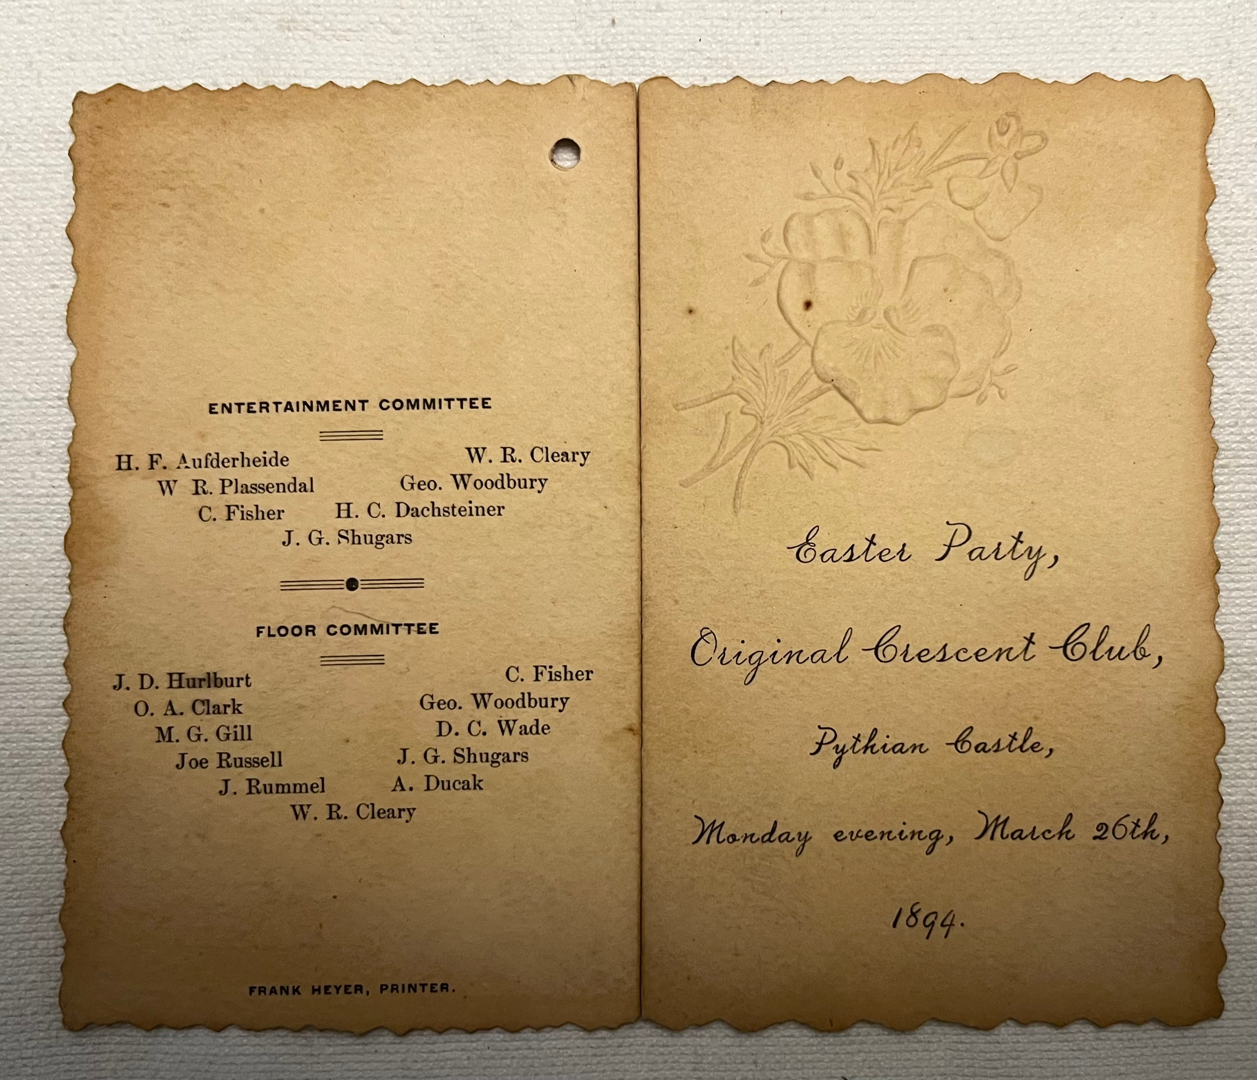 ENTERTAINMENT COMMITTEE
H. F. Aufderheide W. R. Cleary
W R. Plassendal Geo. Woodbury
C. Fisher H. C. Dachsteiner
J. G. Shugars
FLOOR COMMITTEE
J. D. Hurlburt C. Fisher
O. A. Clark Geo. Woodbury
M. G. Gill D. C. Wade
Joe Russell J. G. Shugars
J. Rummel A. Ducak
W. R. Cleary
FRANK HEYER, PRINTER.
Easter Party,
Original Crescent Club,
Pythian Castle,
Monday evening, March 26th,
1894.